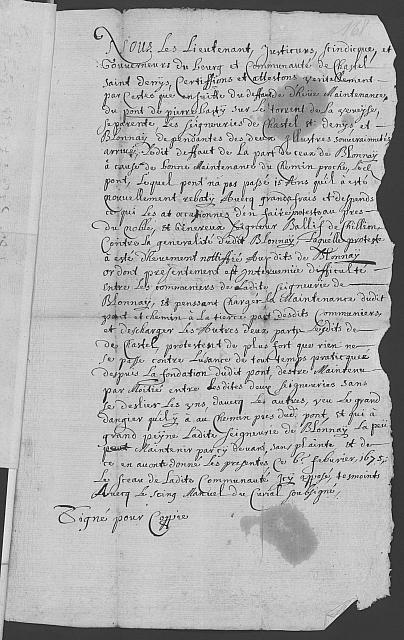 Nous Les Lieutenant, Justiciers, Scindicque, et
Gouverneurs du Bourg et Communauté de Chastel
saint Denys, Certiffions et attestons veritablement
par Cestes que ensuitte du deffaut de deüe Maintenance
du pont de pierre basty sur le torrent de la veveyse,
separante Les Seigneuries de Chastel st denys, et
Blonnay dependantes des deux Illustres Souverainités
arrivé, Ledit deffaut de La part de ceux de Blonnay
à cause de bonne Maintenance du Chemin proche Led
pont, Lequel pont na pas passé 15 Ans quil à esté
nouvellement rebaty Avecq grands frais et despends
ce qui Les at occasionnes den faire protester pres
du noble, et Genereux Seigneur Ballif de Chillion
Contre La generalité dudit Blonnay, Laquelle proteste
à esté deüement nottiffiée Auxdits de Blonnay
or dont presentement est Intervenue difficulté
entre Les communiers de Ladite seigneurie de
Blonnay, et pensant Charger La Maintenance dudit
pont et chemin à La tierce part desdits Communiers
et descharger Les Autres deux parts Lesdits de
de Chastel, protestent de plus fort que rien ne
se passe contre Lusance de tout temps pratiquee
despuis La fondation dudit pont, destre Maintenu
par Moitié entre Lesdites deux Seigneuries sans
se deslier Les uns, davecq Les autres, veu Le grand
dangier quil y à au Chemin pres dudit pont, et qui à
grand peyne Ladite Seigneurie de Blonnay La peu
Maintenir par cy devant, sans plainte Et de
ce en avons donné Les presentes Ce 6e febvrier 1675,
Le sceau de Ladite Communauté Icy apposé, tesmoints
Avecq Le seing Manuel du Curial soubsigné,
Signé pour Coppie